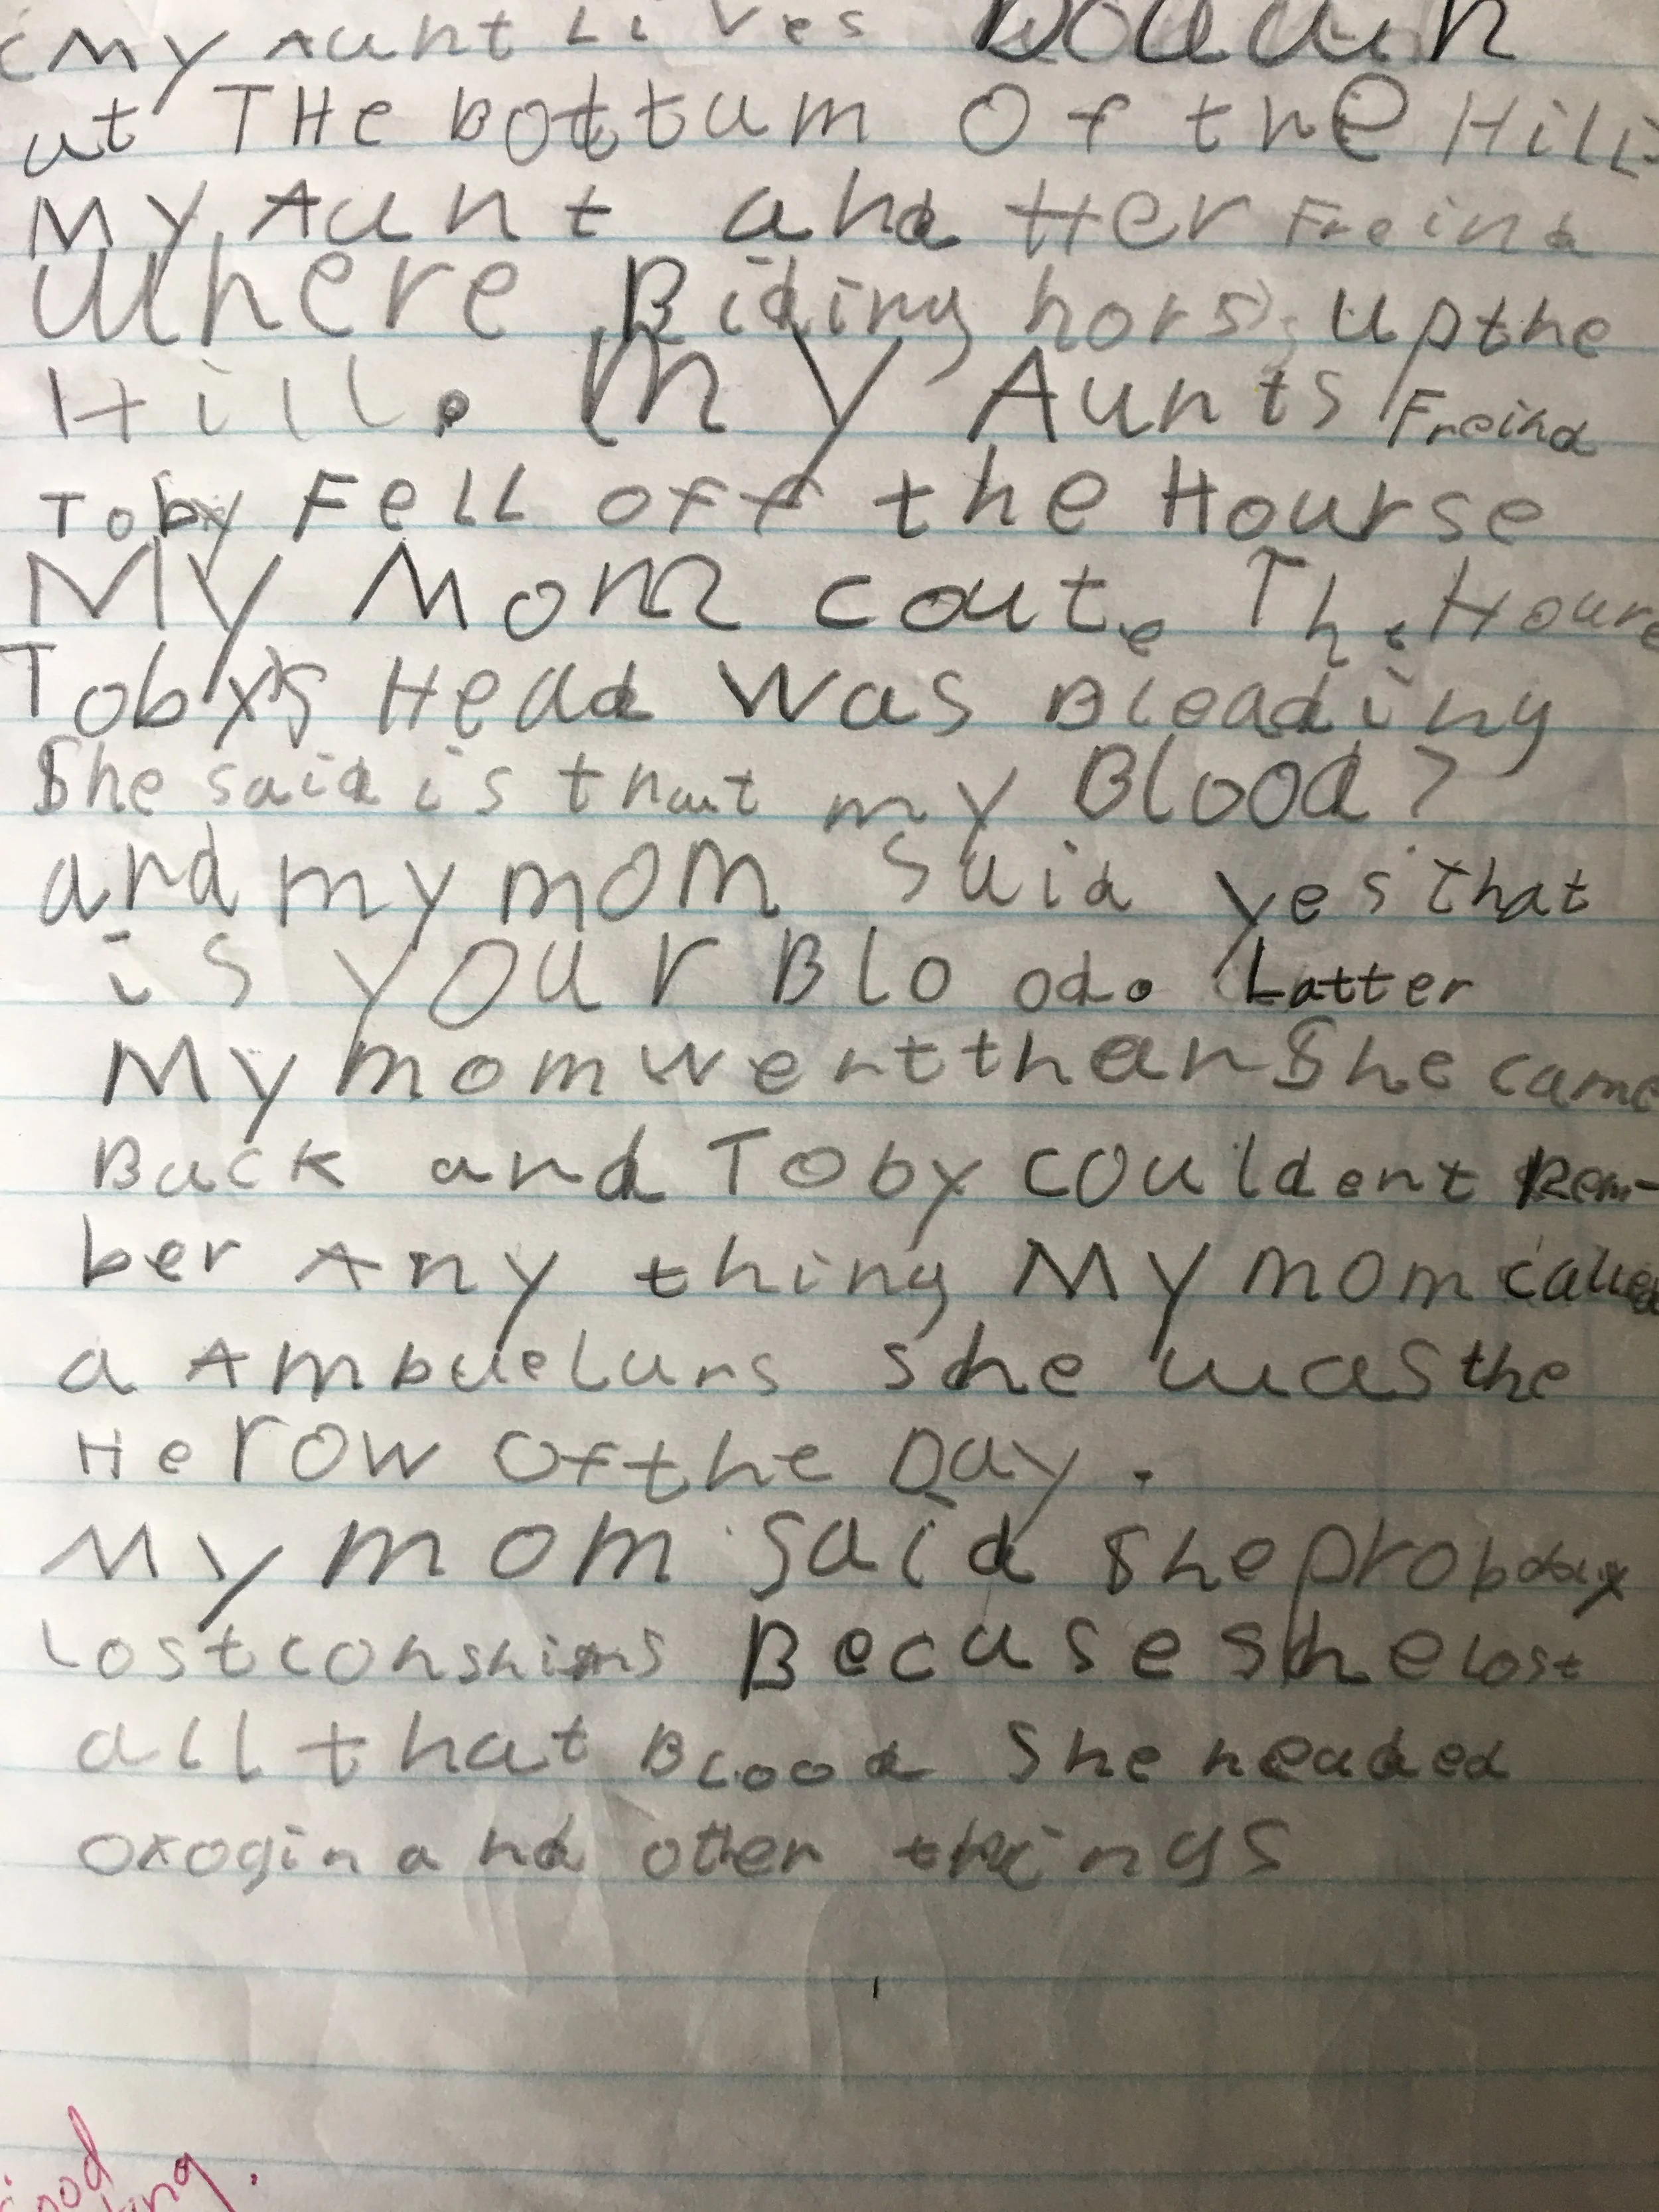 My Aunt Lives Douun
at THe bottum Of the Hill
My Aunt and Her Freind
Where Riding hors up the
Hill. My Aunts Freind
Toby Fell off the Hourse
My Mom cout. The Hourse
Toby's Head was Bleading
She said is that my Blood?
and my mom said yes that
is your Blo od. Latter
My mom went than She came
Back and Toby couldent Rem-
ber Any thing My mom called
a Ambuelans she was the
Herow Of the Day.
My mom said She probablx
Lost conshisns Becuse she lost
all that Blood She neaded
oxogin and other things